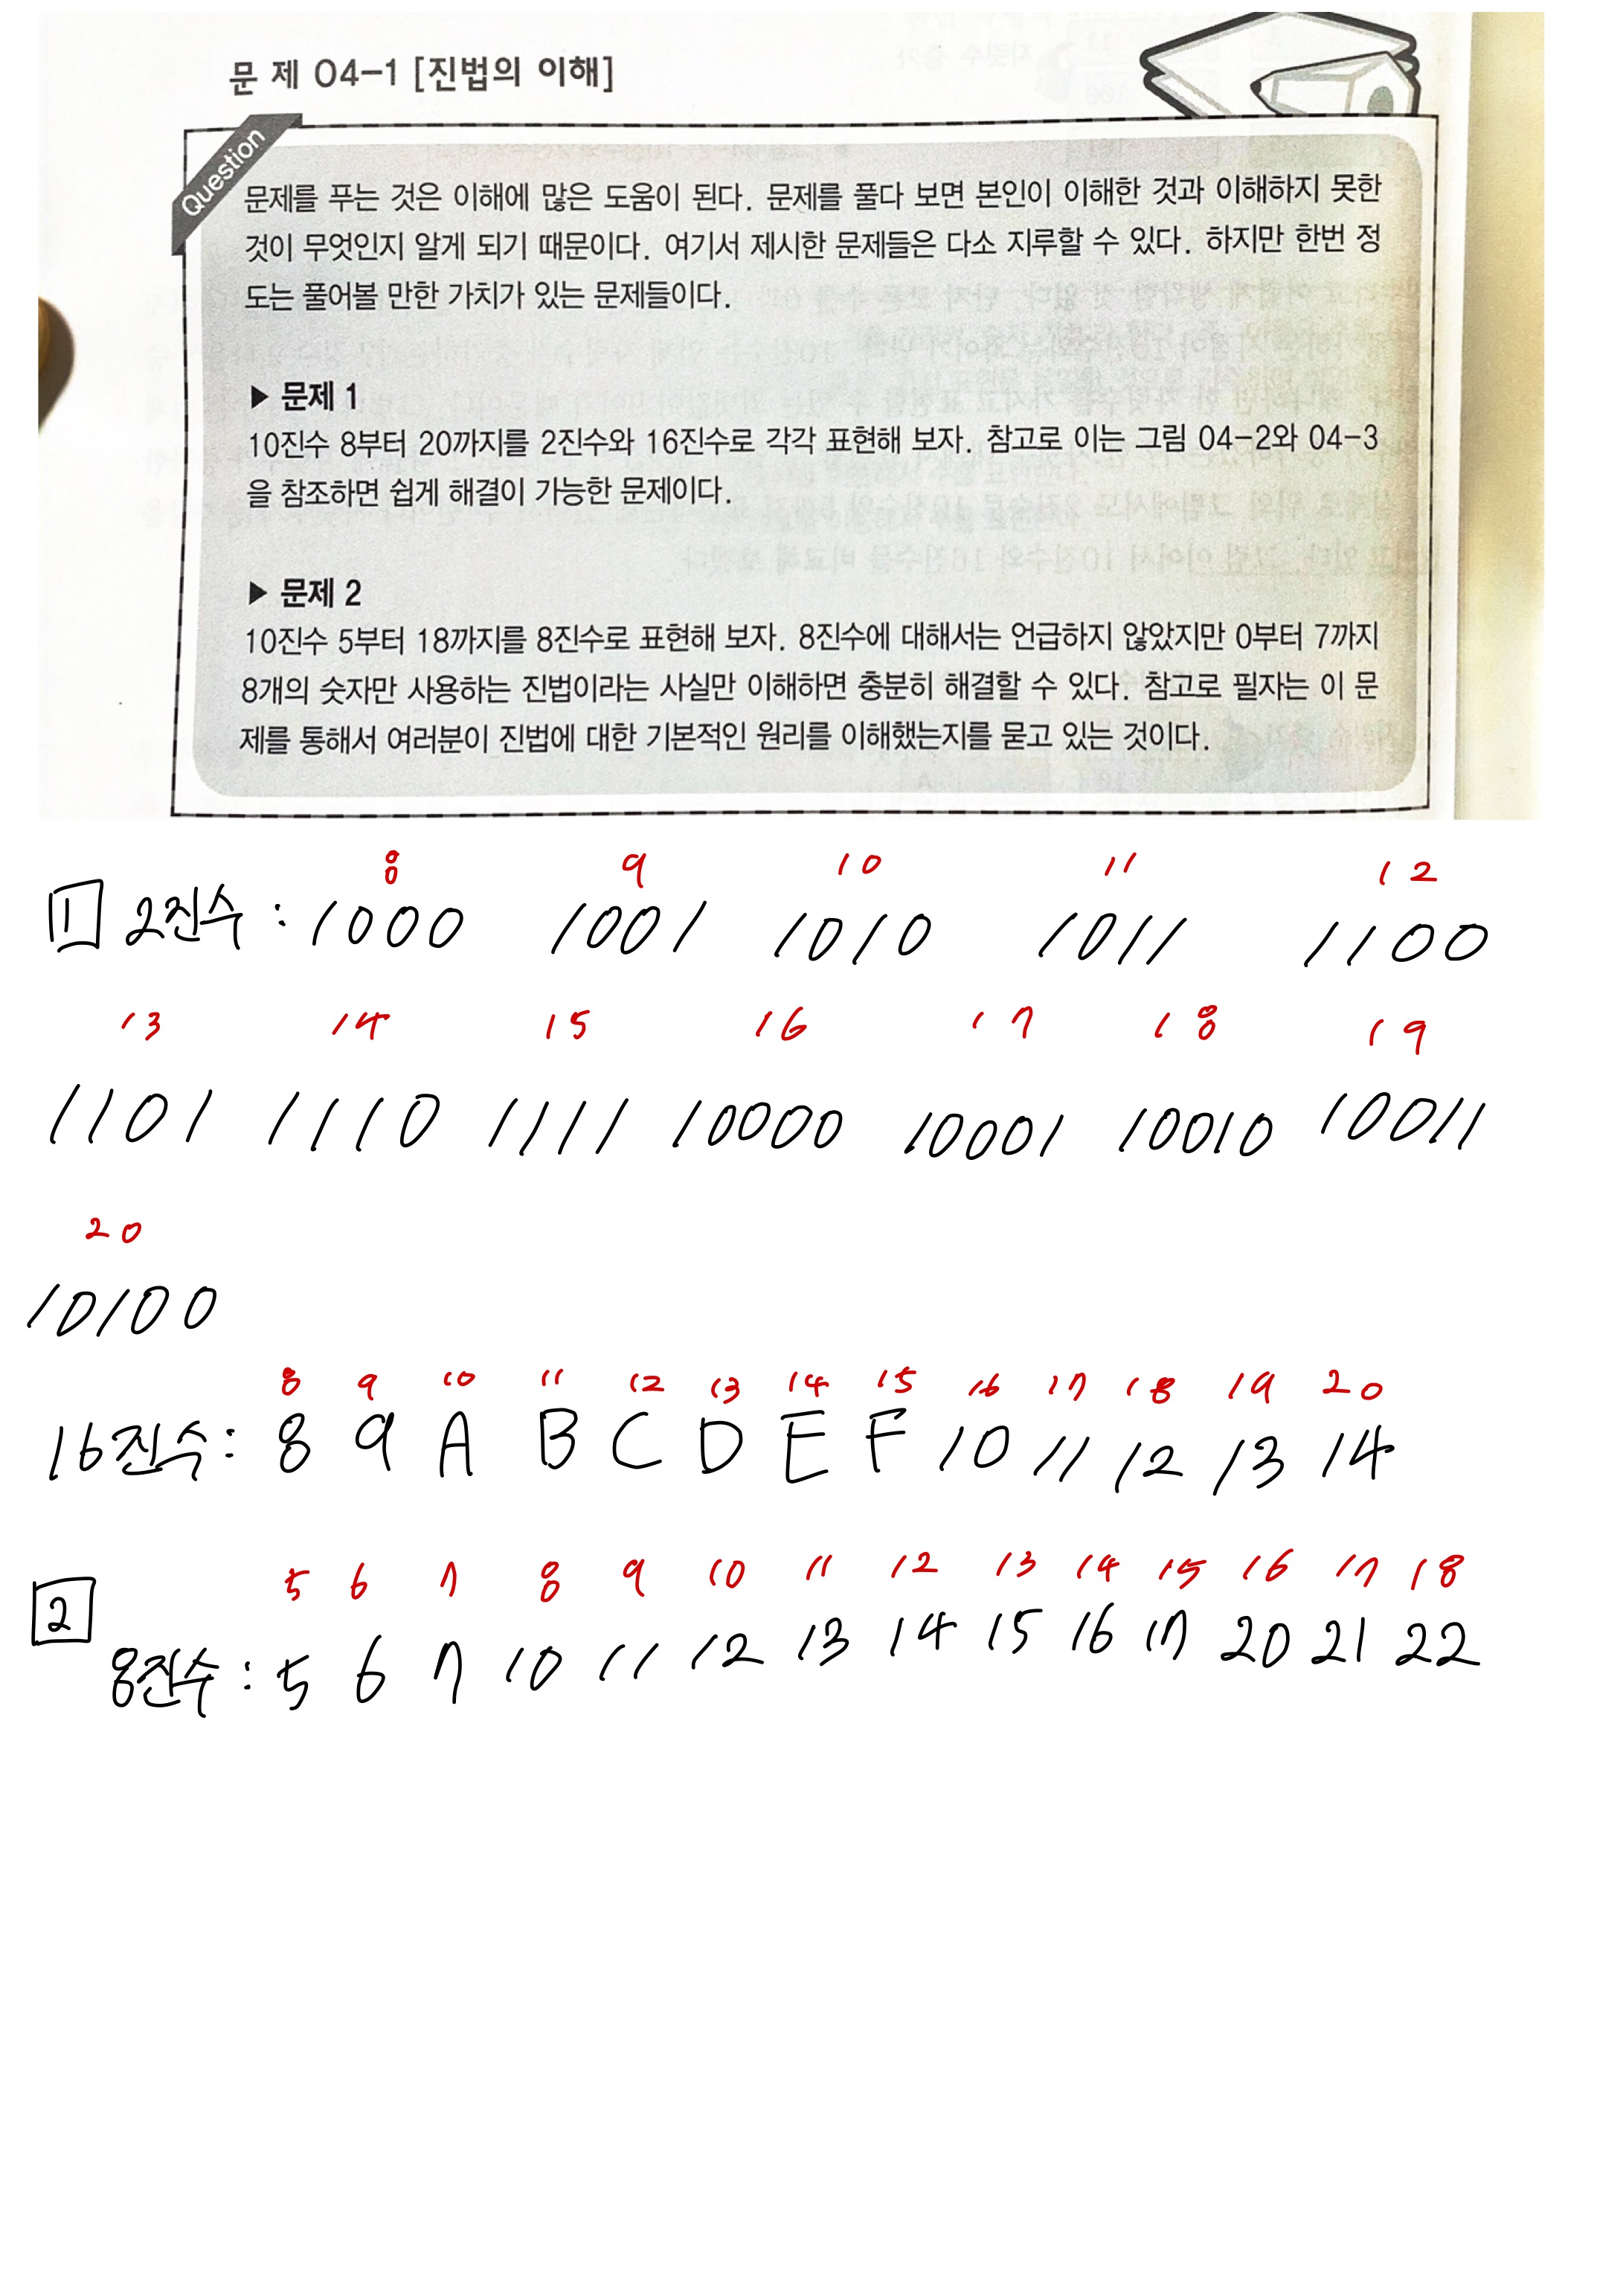 문 제 04-1 [진법의 이해]
Question
문제를 푸는 것은 이해에 많은 도움이 된다. 문제를 풀다 보면 본인이 이해한 것과 이해하지 못한
것이 무엇인지 알게 되기 때문이다. 여기서 제시한 문제들은 다소 지루할 수 있다. 하지만 한번 정
도는 풀어볼 만한 가치가 있는 문제들이다.
▶ 문제 1
10진수 8부터 20까지를 2진수와 16진수로 각각 표현해 보자. 참고로 이는 그림 04-2와 04-3
을 참조하면 쉽게 해결이 가능한 문제이다.
▶ 문제 2
10진수 5부터 18까지를 8진수로 표현해 보자. 8진수에 대해서는 언급하지 않았지만 0부터 7까지
8개의 숫자만 사용하는 진법이라는 사실만 이해하면 충분히 해결할 수 있다. 참고로 필자는 이 문
제를 통해서 여러분이 진법에 대한 기본적인 원리를 이해했는지를 묻고 있는 것이다.
8 9 10 11 12
1 2진수 : 1000 1001 1010 1011 1100
13 14 15 16 17 18 19
1101 1110 1111 10000 10001 10010 10011
20
10100
8 9 10 11 12 13 14 15 16 17 18 19 20
16진수 : 8 9 A B C D E F 10 11 12 13 14
5 6 7 8 9 10 11 12 13 14 15 16 17 18
2
8진수 : 5 6 7 10 11 12 13 14 15 16 17 20 21 22